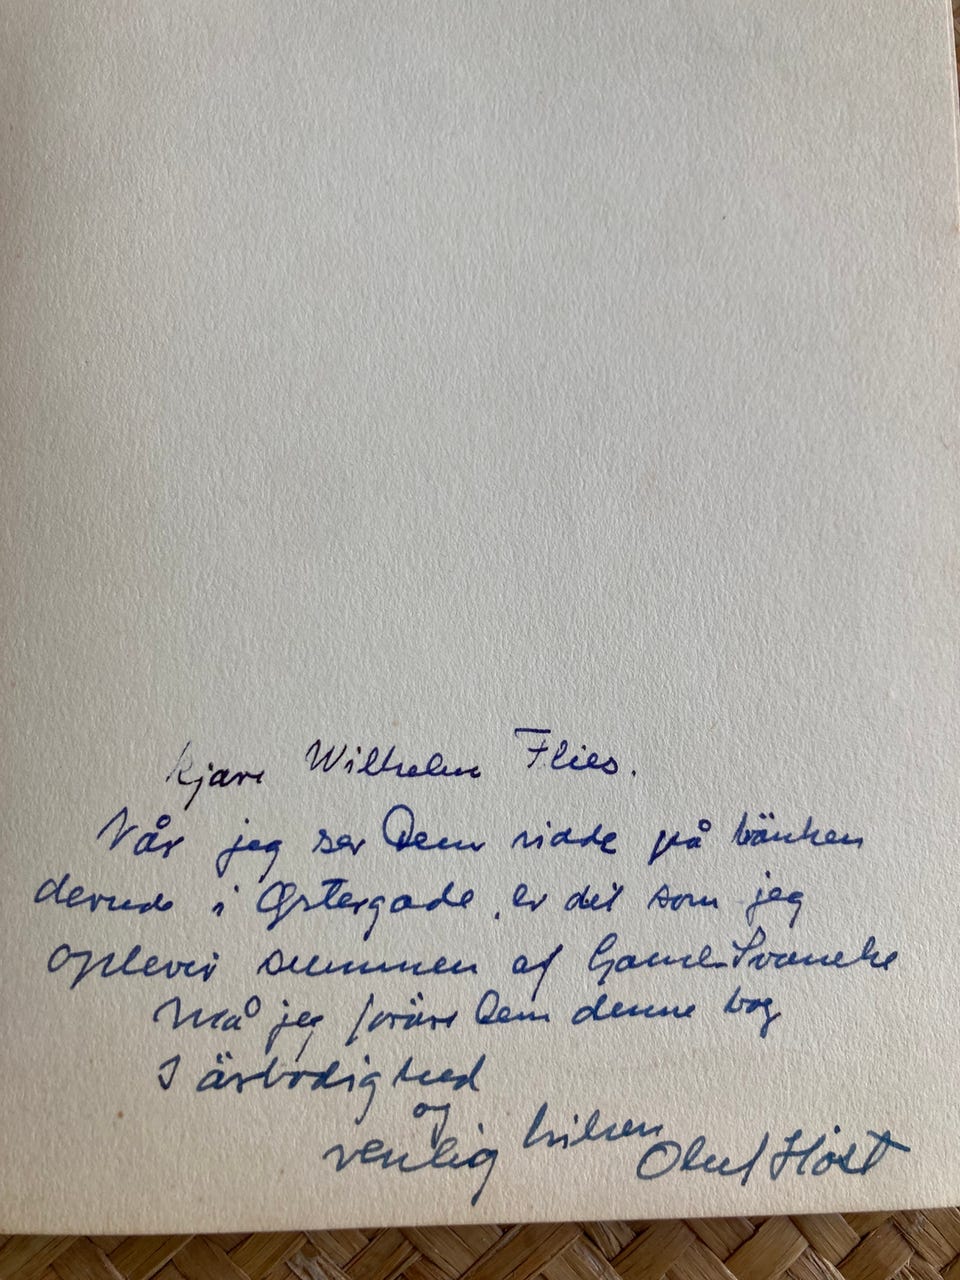 kjäre Wilhelm Flies.
Når jeg ser Dem sidde på bänken
derude i Østergade, er det som jeg
oplever summen af Gamle Svaneke
Må jeg foräre Dem denne bog
I ärbødighed
og
venlig hilsen Oluf Høst